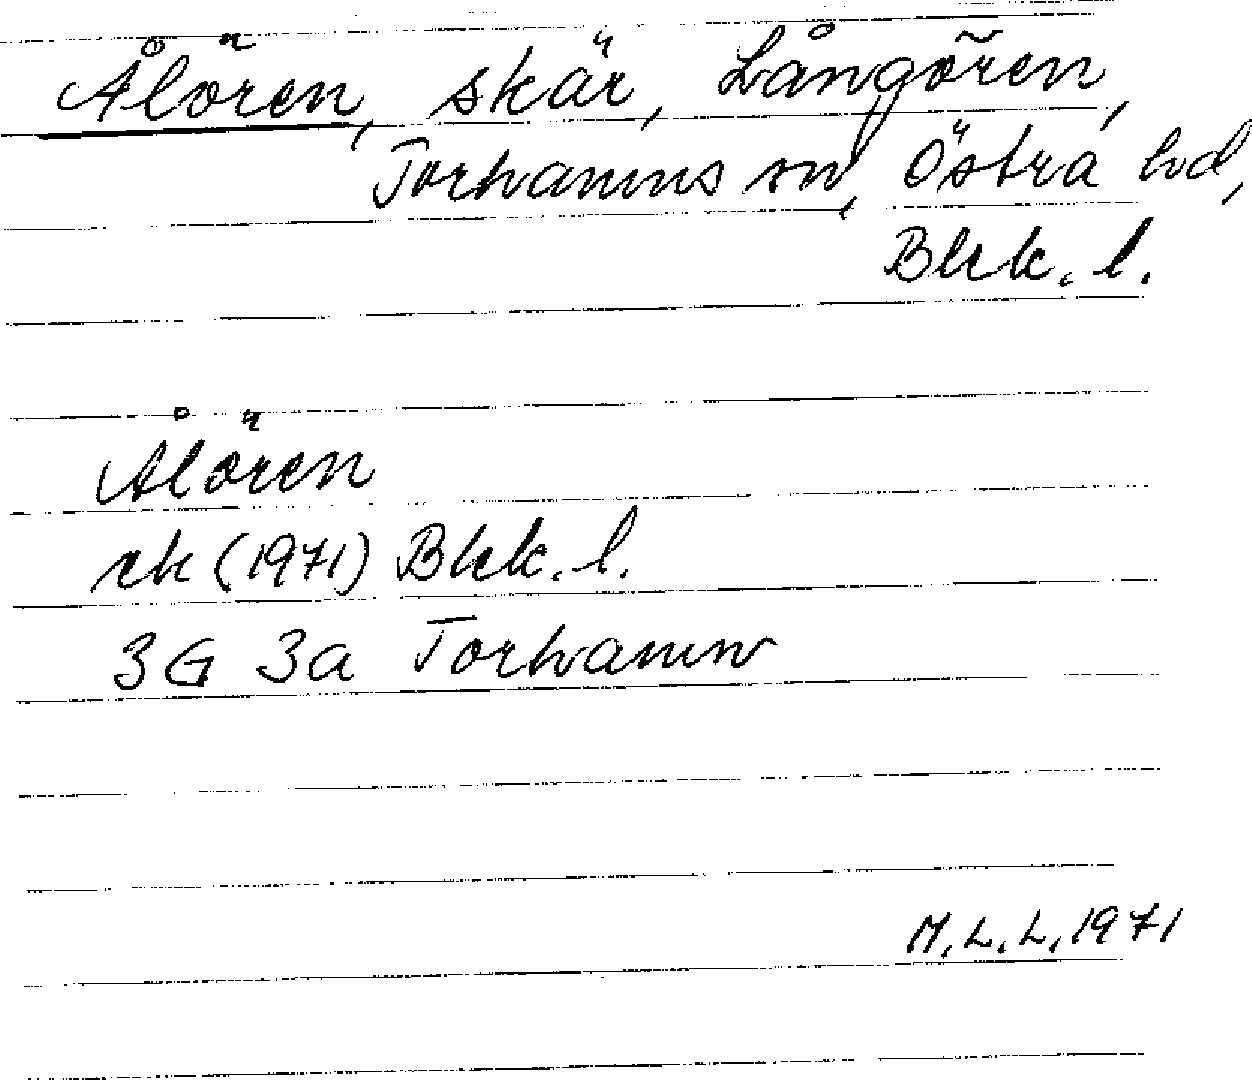 Ålören, skär, Långören,
Torhamns sn, Östra hd,
Blek. l.
Ålören
ek (1971) Blek. l.
3G 3a Torhamn
M.L.L. 1971